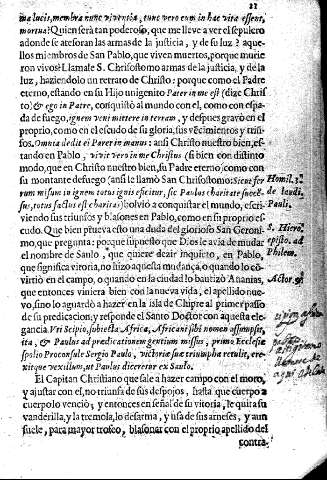 21
ma lucis, membra nunc viventia, tunc vero cum in hac vita essent,
mortua? Quien será tan poderoso, que me lleve a ver el sepulcro
adonde se atesoran las armas de la justicia, y de su luz? aque-
llos miembros de San Pablo, que viven muertos, porque murie
ron vivos? Llamale S. Chrisostomo armas de la justicia, y de la
luz, haziendolo un retrato de Christo: porque como el Padre
eterno, estando en su Hijo unigenito Pater in me est (dize Chris
to) & ego in Patre, conquistò al mundo con el, como con espa-
da de fuego, ignem veni mittere in terram, y despues gravò en el
proprio, como en el escudo de su gloria, sus vẽcimientos y triũ-
fos. Omnia dedit ei Pater in manus: ansi Christo nuestro bien, es-
tando en Pablo, vivit vero in me Christus (si bien con distinto
modo, que en Christo nuestro bien, su Padre eterno) como con
su montante de fuego (ansi le llamò San Chrisostomo: Sicut fer
rum missum in ignem totus ignis efficitur, sic Paulus charitate succẽ-
sus, totus factus est charitas) bolviò a conquistar el mundo, escri-
viendo sus triunfos y blasones en Pablo, como en su proprio es-
cudo. Que bien pruẽva esto una duda del glorioso San Geroni-
mo, que pregunta: porque supuesto que Dios le avia de mudar
el nombre de Saulo, que quiere dezir inquieto, en Pablo,
que significa vitoria, no hizo aquesta mudança, o quando lo cõ-
virtiò en el campo, o quando en la ciudad lo bautizò Ananias,
que entonces viniera bien con la nueva vida, el apellido nue-
vo, sino lo aguardò a hazer en la isla de Chipre al primer passo
de su predicacion; y responde el Santo Doctor con aquesta ele-
gancia. Vti Scipio, subiecta Africa, Africani sibi nomen assumpsit,
ita, & Paulus ad praedicationem gentium missus, primo Ecclesiæ
spolio Proconsule Sergio Paulo, victoriæ suæ triumpha retulit, ere-
xitque vexillum, ut Paulus diceretur ex Saulo.
El Capitan Christiano que sale a hazer campo con el moro,
y ajustar con el, no triunfa de sus despojos, hasta que cuerpo a
cuerpo lo venciò; y entonces en señal de su vitoria, le quita su
vanderilla, y la tremola, lo desarma, y usa de sus arneses, y aun
suele, para mayor trofeo, blasonar con el proprio apellido del
contra-
Homil. 3.
de laudi.
Pauli.
S. Hiero.
epist. ad
Philem.
Actor. 9.